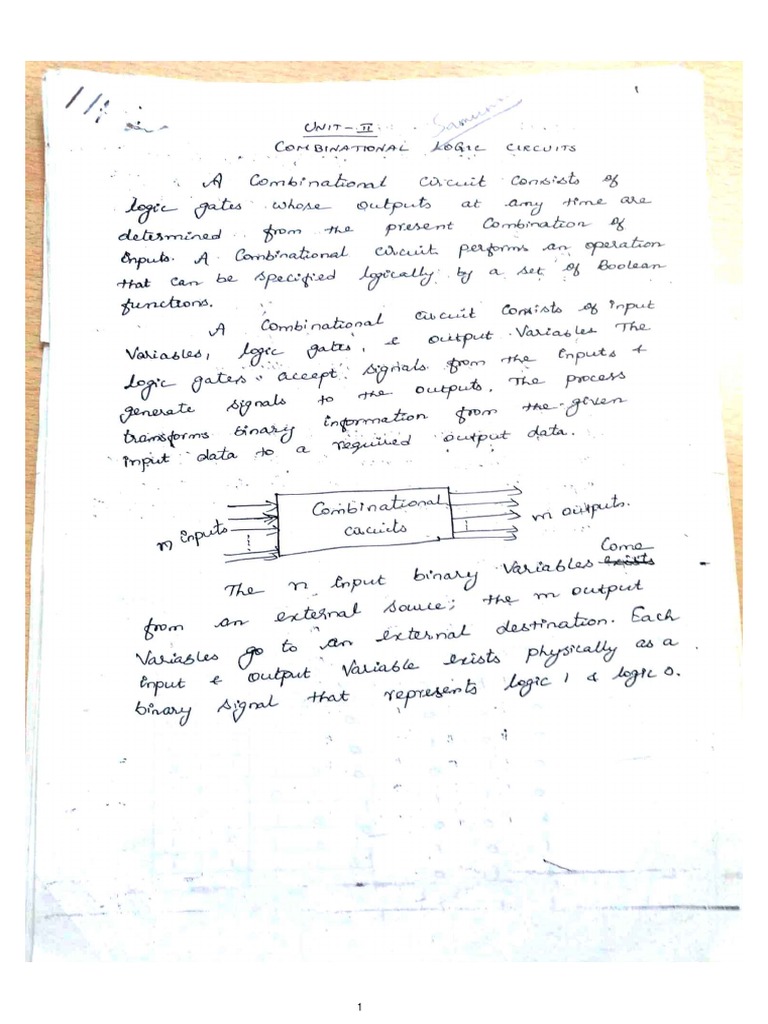 1
UNIT-II
COMBINATIONAL LOGIC CIRCUITS
A Combinational circuit consists of
logic gates whose outputs at any time are
determined from the present combination of
inputs. A Combinational circuit performs an operation
that can be specified logically by a set of Boolean
functions.
A Combinational circuit consists of input
Variables, logic gates, & output Variables The
logic gates accept signals from the inputs &
generate signals to the outputs. The process
transforms binary information from the given
input data to a required output data.
n inputs
Combinational
circuits
m outputs.
The n input binary Variables exists Come
from an external source; the m output
Variables go to an external destination. Each
input & output Variable exists physically as a
binary signal that represents logic 1 & logic 0.
1